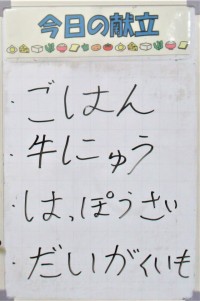 今日の献立
ごはん
牛にゅう
はっぽうさい
だいがくいも